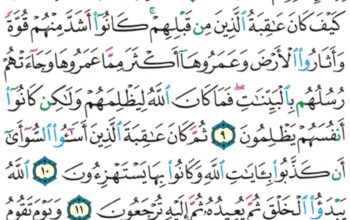 كَيْفَ كَانَ عَٰقِبَةُ ٱلَّذِينَ مِن قَبْلِهِمْ ۚ كَانُوٓا۟ أَشَدَّ مِنْهُمْ قُوَّةً
وَأَثَارُوا۟ ٱلْأَرْضَ وَعَمَرُوهَآ أَكْثَرَ مِمَّا عَمَرُوهَا وَجَآءَتْهُمْ
رُسُلُهُم بِٱلْبَيِّنَٰتِ ۖ فَمَا كَانَ ٱللَّهُ لِيَظْلِمَهُمْ وَلَٰكِن كَانُوٓا۟
أَنفُسَهُمْ يَظْلِمُونَ ٩ ثُمَّ كَانَ عَٰقِبَةَ ٱلَّذِينَ أَسَٰٓـُٔوا۟ ٱلسُّوٓأَىٰٓ
أَن كَذَّبُوا۟ بِـَٔايَٰتِ ٱللَّهِ وَكَانُوا۟ بِهَا يَسْتَهْزِءُونَ ١٠ ٱللَّهُ
يَبْدَؤُا۟ ٱلْخَلْقَ ثُمَّ يُعِيدُهُۥ ثُمَّ إِلَيْهِ تُرْجَعُونَ ١١ وَيَوْمَ تَقُومُ